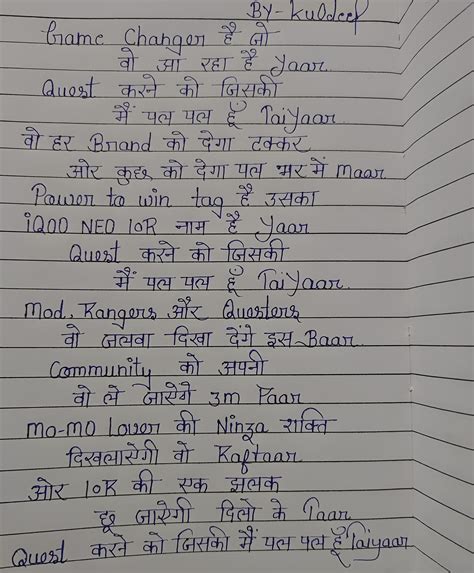 By- Kuldeep
Game Changer है जो
वो आ रहा है Yaar
Quest करने को जिसकी
मैं पल पल हूँ TaiYaar
वो हर Brand को देगा टक्कर
और कुछ को देगा पल भर में Maar
Power to win tag है उसका
iQOO NEO 10R नाम है Yaar
Quest करने को जिसकी
मैं पल पल हूँ TaiYaar
Mod, Rangers और Questers
वो जलवा दिखा देंगे इस Baar
Community को अपनी
वो ले जाऐगे 3m Paar
Mo-Mo Lover की Ninza शक्ति
दिखलाऐगी वो Raftaar
और 10R की एक झलक
छू जाऐगी दिलो के Taar
Quest करने को जिसकी मैं पल पल हूँ Taiyaar